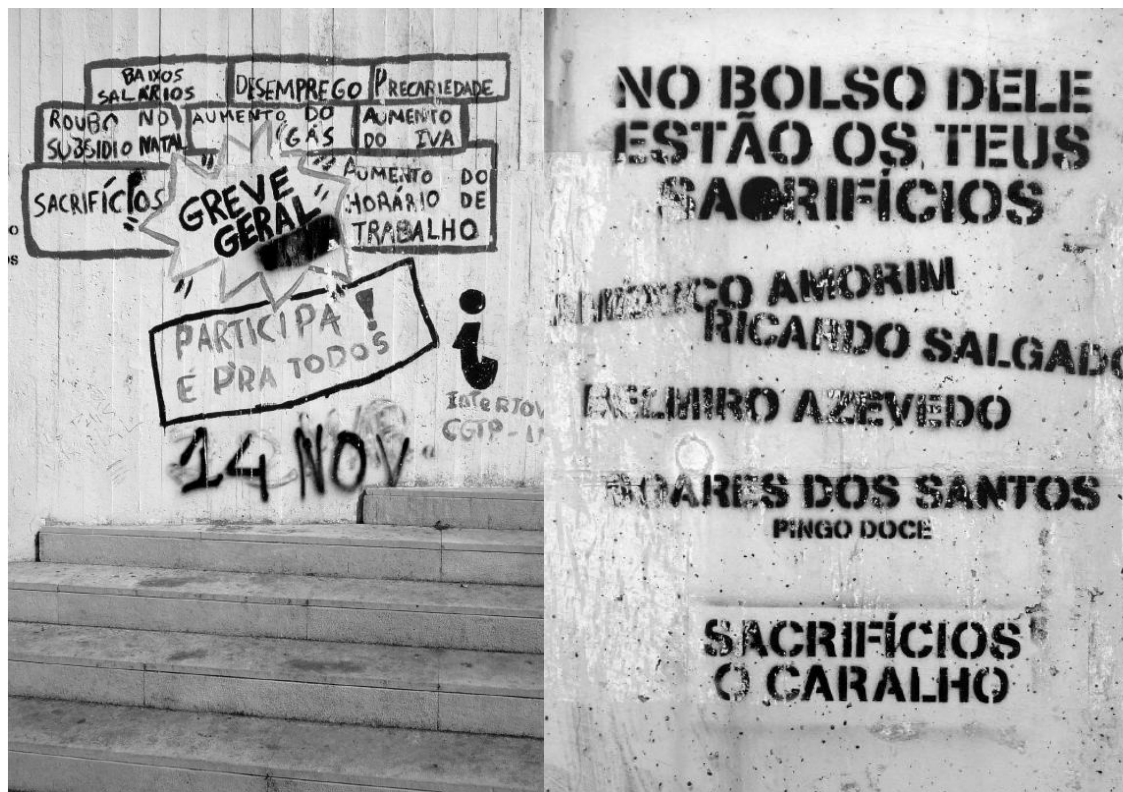 BAIXOS
SALÁRIOS
DESEMPREGO
PRECARIEDADE
ROUBO NO
SUBSIDIO NATAL
AUMENTO DO
GÁS
AUMENTO
DO IVA
SACRIFÍCIOS
GREVE
GERAL
AUMENTO DO
HORÁRIO DE
TRABALHO
PARTICIPA!
É PRA TODOS
i
INTERJOV
CGTP-IN
14 NOV.
NO BOLSO DELE
ESTÃO OS TEUS
SACRIFÍCIOS
AMÉRICO AMORIM
RICARDO SALGADO
BELMIRO AZEVEDO
SOARES DOS SANTOS
PINGO DOCE
SACRIFÍCIOS
O CARALHO